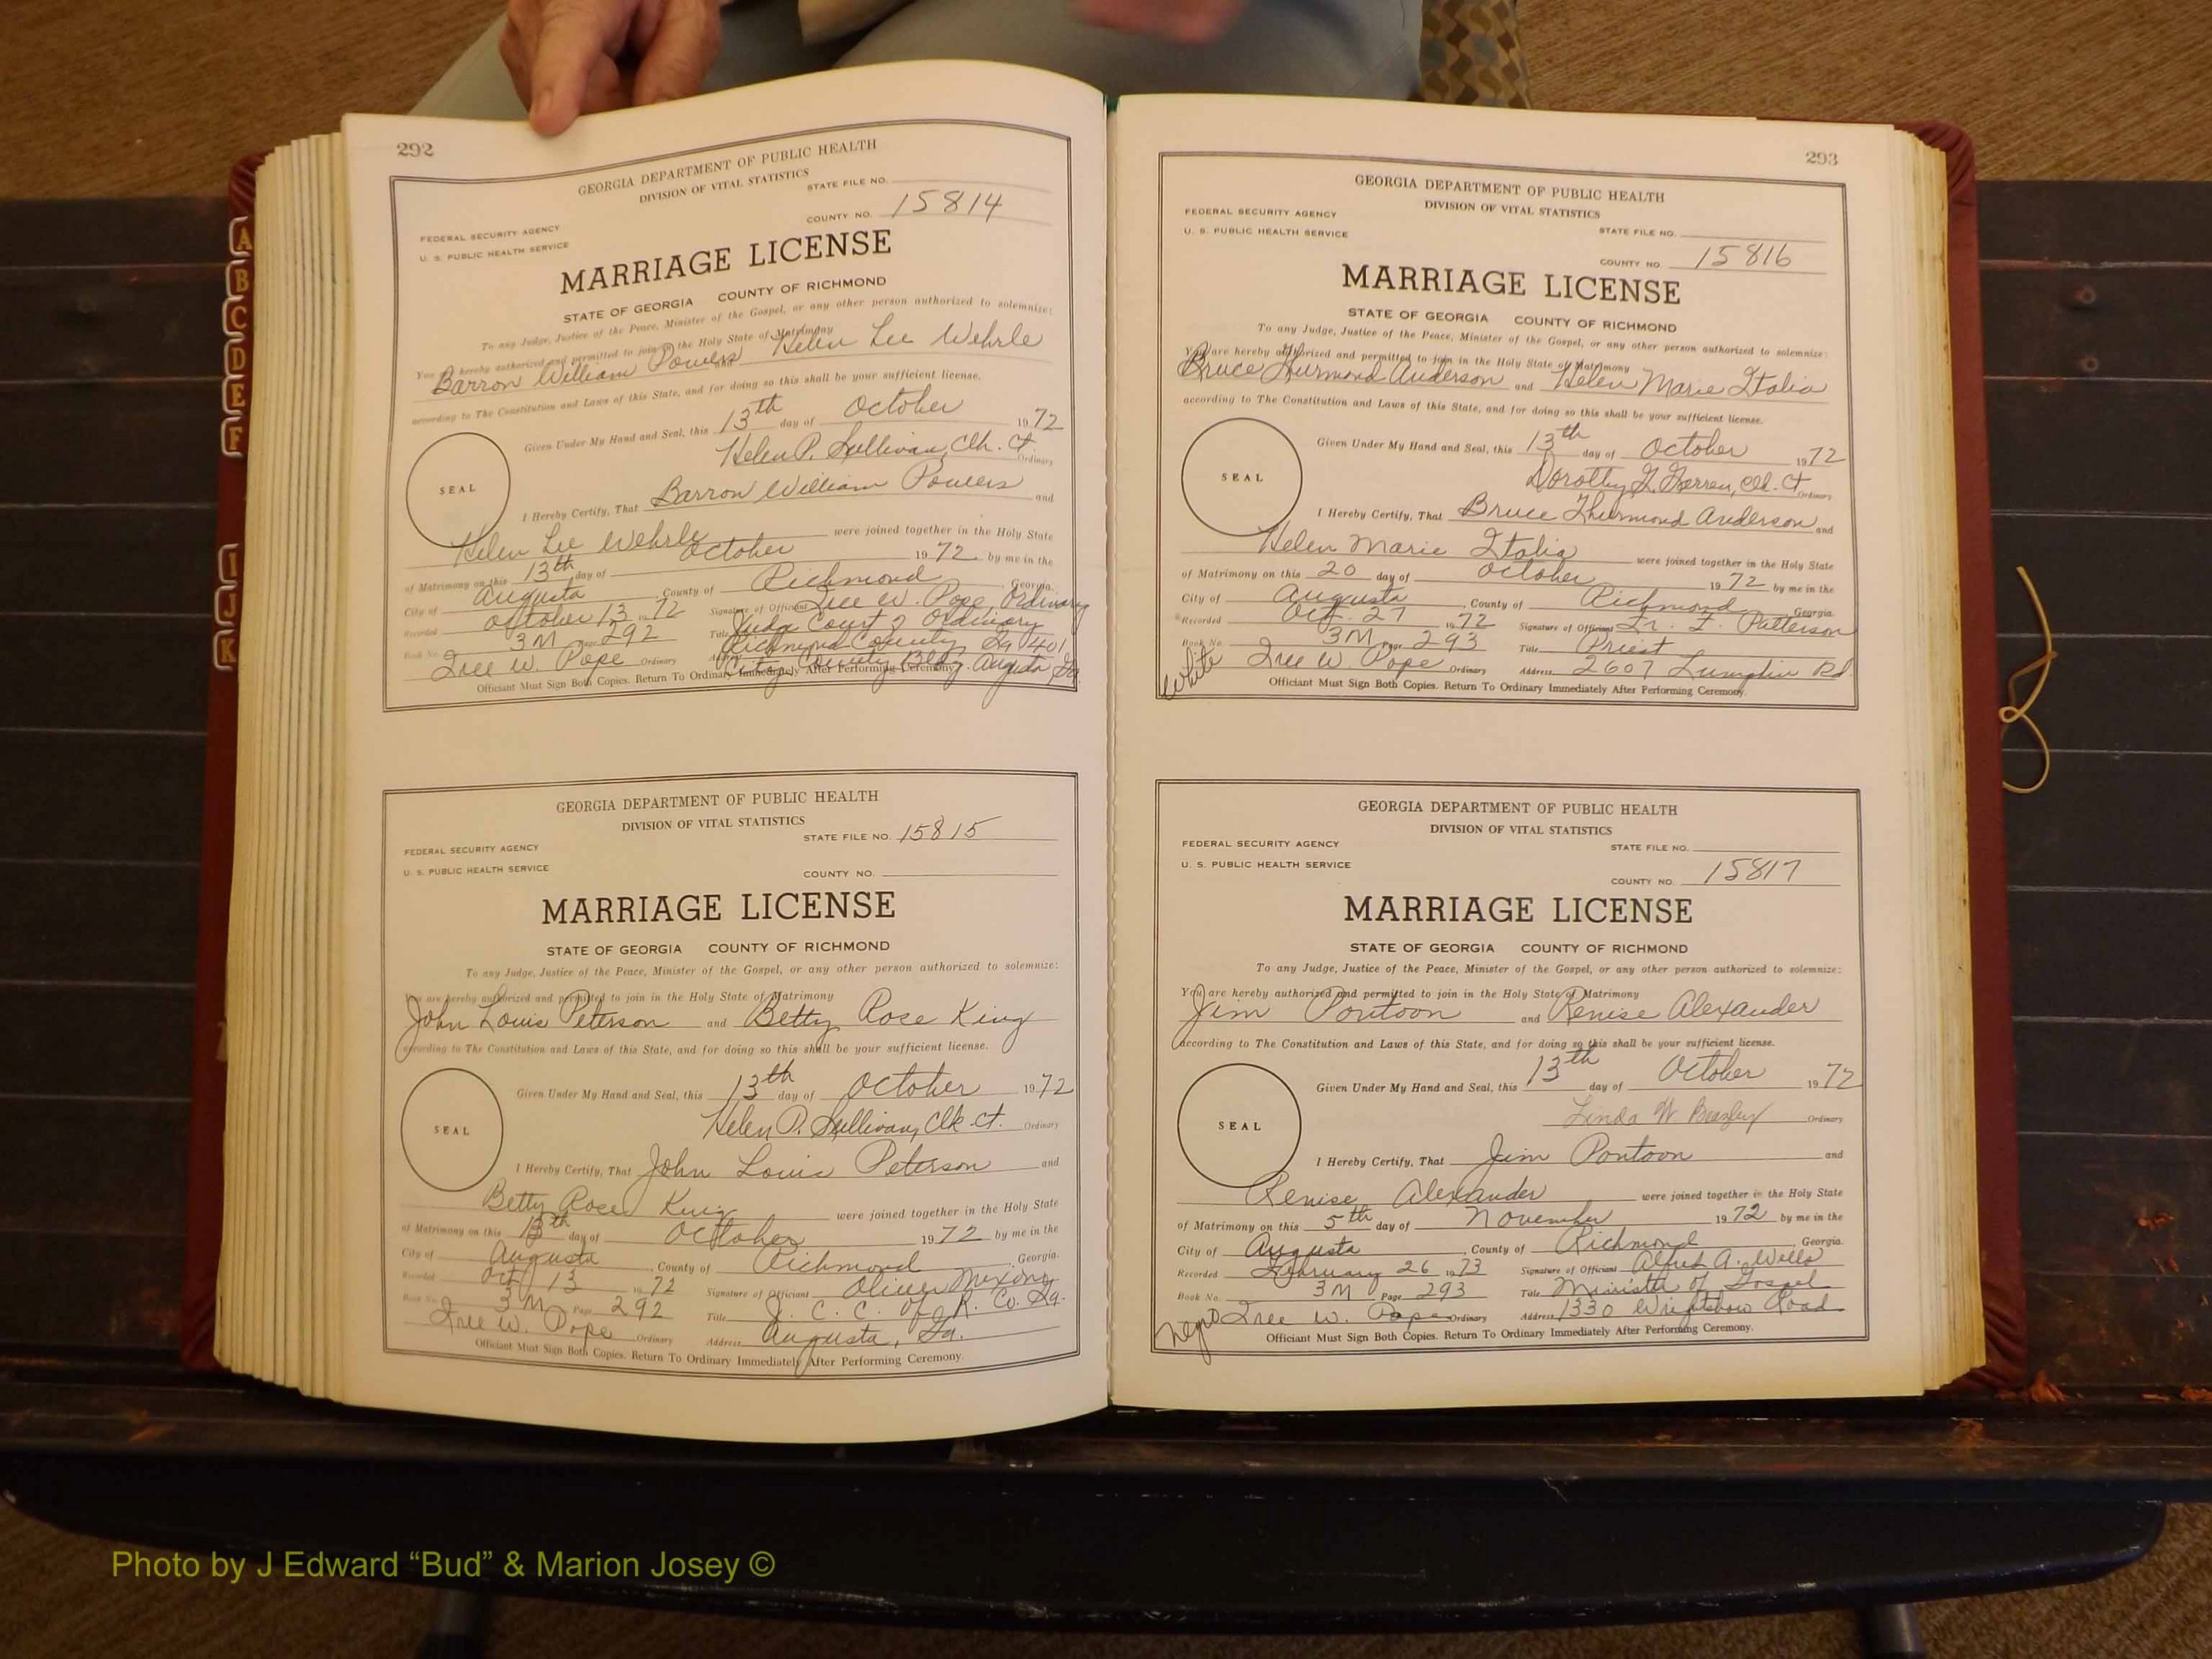 292
GEORGIA DEPARTMENT OF PUBLIC HEALTH
DIVISION OF VITAL STATISTICS
STATE FILE NO.
COUNTY NO. 15814
FEDERAL SECURITY AGENCY
U. S. PUBLIC HEALTH SERVICE
MARRIAGE LICENSE
STATE OF GEORGIA COUNTY OF RICHMOND
To any Judge, Justice of the Peace, Minister of the Gospel, or any other person authorized to solemnize:
You are hereby authorized and permitted to join in the Holy State of Matrimony
Barron William Powers and Helen Lee Wehrle
according to The Constitution and Laws of this State, and for doing so this shall be your sufficient license.
Given Under My Hand and Seal, this 13th day of October 1972
Helen P. Sullivan, Clk. Ct. Ordinary
SEAL
I Hereby Certify, That Barron William Powers and
Helen Lee Wehrle were joined together in the Holy State
of Matrimony on this 13th day of October 1972 by me in the
City of Augusta, County of Richmond, Georgia.
Recorded October 13 1972 Signature of Officiant Iree W. Pope, Ordinary
Book No. 3M Page 292 Title Judge Court of Ordinary
Richmond County
Iree W. Pope Ordinary Address City County Bldg. Augusta Ga.
Officiant Must Sign Both Copies. Return To Ordinary Immediately After Performing Ceremony.
GEORGIA DEPARTMENT OF PUBLIC HEALTH
DIVISION OF VITAL STATISTICS
STATE FILE NO. 15815
FEDERAL SECURITY AGENCY
U. S. PUBLIC HEALTH SERVICE
COUNTY NO.
MARRIAGE LICENSE
STATE OF GEORGIA COUNTY OF RICHMOND
To any Judge, Justice of the Peace, Minister of the Gospel, or any other person authorized to solemnize:
You are hereby authorized and permitted to join in the Holy State of Matrimony
John Louis Peterson and Betty Rose King
according to The Constitution and Laws of this State, and for doing so this shall be your sufficient license.
Given Under My Hand and Seal, this 13th day of October 1972
Helen P. Sullivan, Clk. Ct. Ordinary
SEAL
I Hereby Certify, That John Louis Peterson and
Betty Rose King were joined together in the Holy State
of Matrimony on this 13th day of October 1972 by me in the
City of Augusta, County of Richmond, Georgia.
Recorded Oct 13 1972 Signature of Officiant Oliver Mixon
Book No. 3M Page 292 Title J. C. C. of R. Co. Ga.
Iree W. Pope Ordinary Address Augusta, Ga.
Officiant Must Sign Both Copies. Return To Ordinary Immediately After Performing Ceremony.
293
GEORGIA DEPARTMENT OF PUBLIC HEALTH
DIVISION OF VITAL STATISTICS
FEDERAL SECURITY AGENCY
U. S. PUBLIC HEALTH SERVICE
STATE FILE NO.
COUNTY NO. 15816
MARRIAGE LICENSE
STATE OF GEORGIA COUNTY OF RICHMOND
To any Judge, Justice of the Peace, Minister of the Gospel, or any other person authorized to solemnize:
You are hereby authorized and permitted to join in the Holy State of Matrimony
Bruce Thurmond Anderson and Helen Marie Italia
according to The Constitution and Laws of this State, and for doing so this shall be your sufficient license.
Given Under My Hand and Seal, this 13th day of October 1972
Dorothy Clk. Ct. Ordinary
SEAL
I Hereby Certify, That Bruce Thurmond Anderson and
Helen Marie Italia were joined together in the Holy State
of Matrimony on this 20 day of October 1972 by me in the
City of Augusta, County of Richmond, Georgia.
Recorded Oct. 27 1972 Signature of Officiant Fr. F. Patterson
Book No. 3M Page 293 Title Priest
White Iree W. Pope Ordinary Address 2607 Lumpkin Rd.
Officiant Must Sign Both Copies. Return To Ordinary Immediately After Performing Ceremony.
GEORGIA DEPARTMENT OF PUBLIC HEALTH
DIVISION OF VITAL STATISTICS
FEDERAL SECURITY AGENCY
STATE FILE NO.
U. S. PUBLIC HEALTH SERVICE
COUNTY NO. 15817
MARRIAGE LICENSE
STATE OF GEORGIA COUNTY OF RICHMOND
To any Judge, Justice of the Peace, Minister of the Gospel, or any other person authorized to solemnize:
You are hereby authorized and permitted to join in the Holy State of Matrimony
Jim Pontoon and Renise Alexander
according to The Constitution and Laws of this State, and for doing so this shall be your sufficient license.
Given Under My Hand and Seal, this 13th day of October 1972
Linda W. Beasley Ordinary
SEAL
I Hereby Certify, That Jim Pontoon and
Renise Alexander were joined together in the Holy State
of Matrimony on this 5th day of November 1972 by me in the
City of Augusta, County of Richmond, Georgia.
Recorded February 26 1973 Signature of Officiant Alfred A. Wells
Book No. 3M Page 293 Title Minister of Gospel
Negro Iree W. Pope Ordinary Address 1330 Wrightsboro Road
Officiant Must Sign Both Copies. Return To Ordinary Immediately After Performing Ceremony.
A
B
C
D
E
F
I
J
K
Photo by J Edward “Bud” & Marion Josey ©